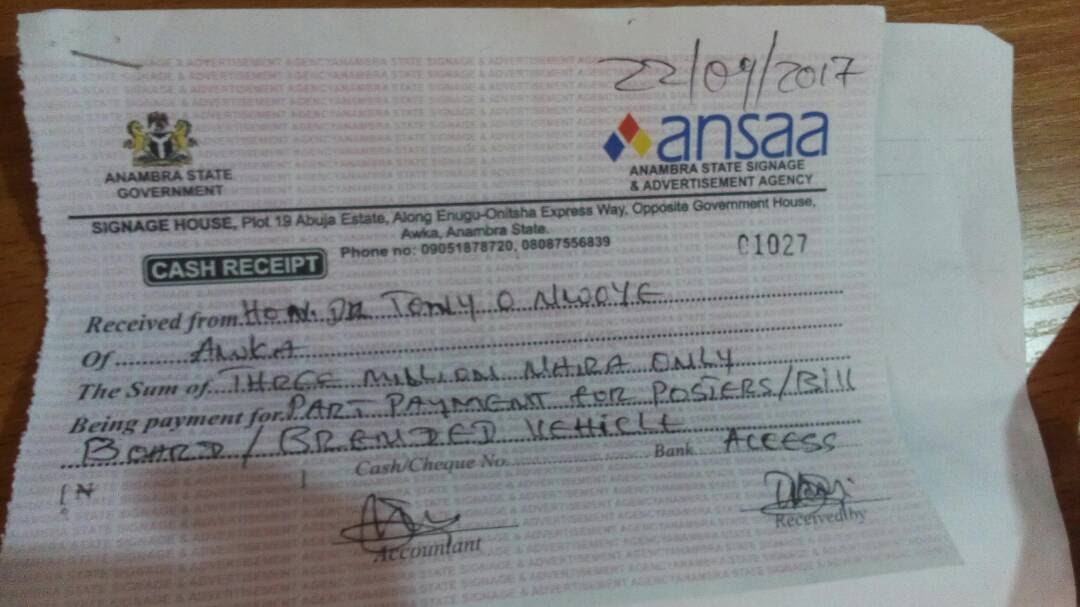 22/09/2017
ANAMBRA STATE
GOVERNMENT
ansaa
ANAMBRA STATE SIGNAGE
& ADVERTISEMENT AGENCY
SIGNAGE HOUSE, Plot 19 Abuja Estate, Along Enugu-Onitsha Express Way, Opposite Government House,
Awka, Anambra State.
Phone no: 09051878720, 08087556839
01027
CASH RECEIPT
Received from HON. DR TONY O NWOYE
Of AWKA
The Sum of THREE MILLION NAIRA ONLY
Being payment for PART PAYMENT FOR POSTERS/BILL
BOARD/BRANDED VEHICLE
Cash/Cheque No. Bank ACCESS
₦
Accountant
Received by